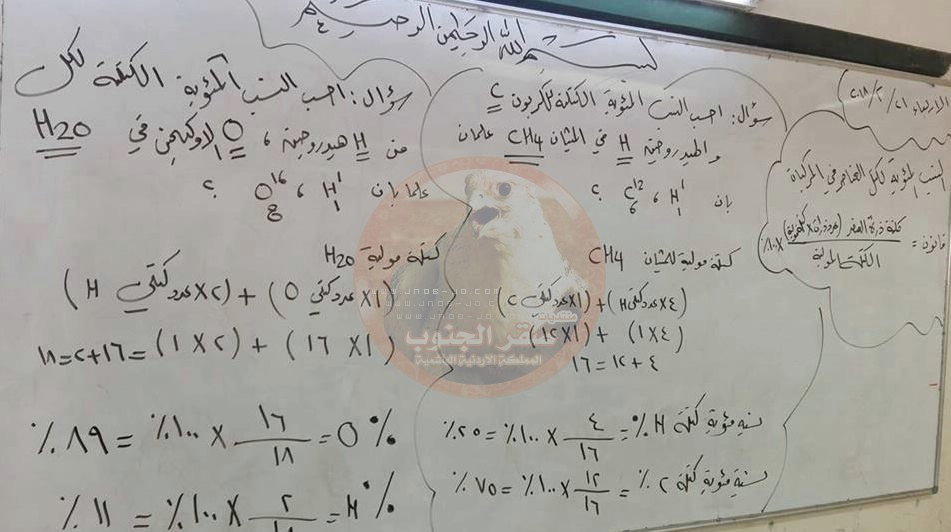 بسم الله الرحمن الرحيم
الاربعاء ٢٠١٨/٢/٢١
النسب المئوية لكل العناصر في المركبات
قانون = كتلة ذرة العنصر (عدد ذرات × كتلتهم) / الكتلة المولية × ١٠٠٪
سؤال: احسب النسب المئوية الكتلية للكربون C
والهيدروجين H في الميثان CH4 علمان
بإن H ١ ١ ، C ١٢ ٦ ؟
كتلة مولية للميثان CH4
(٤× عدد كتلي H) + (١× عدد كتلي C)
(١×٤) + (١٢×١)
٤ + ١٢ = ١٦
نسبة مئوية كتلة H ٪ = ٤/١٦ × ١٠٠٪ = ٢٥٪
نسبة مئوية كتلة C ٪ = ١٢/١٦ × ١٠٠٪ = ٧٥٪
سؤال: احسب النسب المئوية الكتلة لكل
من H هيدروجين ، O الاوكسجين في H2O
علما بإن H ١ ١ ، O ١٦ 8 ؟
كتلة مولية H2O
(١× عدد كتلي O) + (٢× عدد كتلي H)
(١× ١٦) + (٢× ١) = ١٦+٢ = ١٨
٪ O = ١٦/١٨ × ١٠٠٪ = ٨٩٪
٪ H = ٢/١٨ × ١٠٠٪ = ١١٪
www.jnob-jo.com
منتديات
صقر الجنوب
المملكة الاردنية الهاشمية